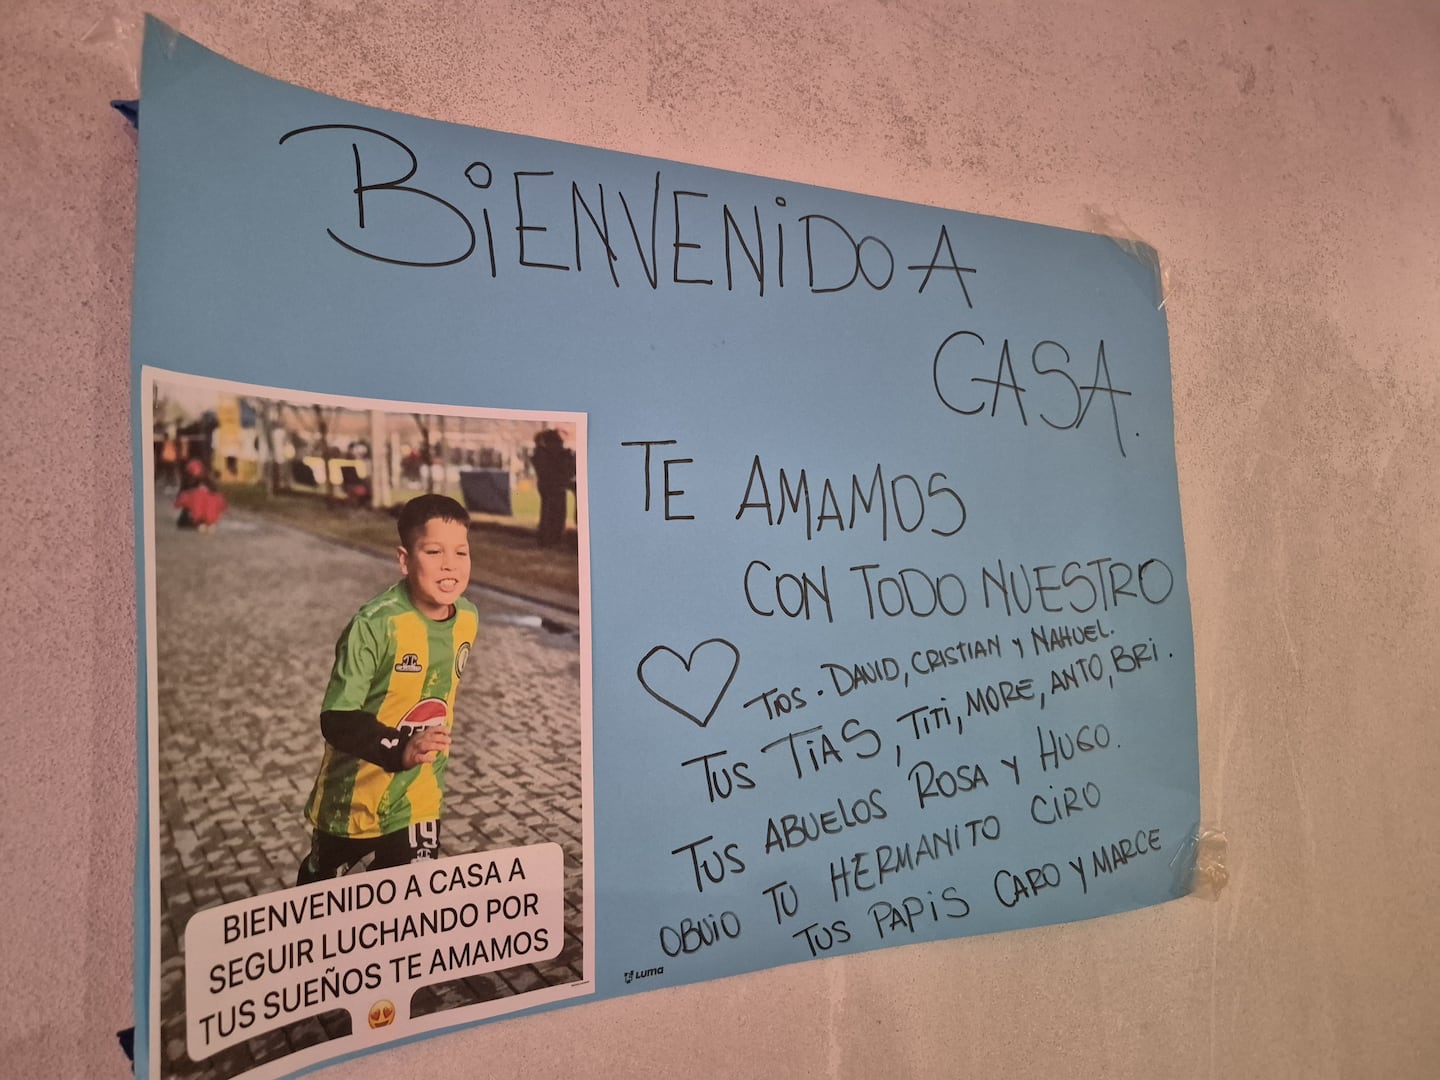 BIENVENIDO A
CASA.
TE AMAMOS
CON TODO NUESTRO
TIOS. DAVID, CRISTIAN Y NAHUEL.
TUS TIAS, TITI, MORE, ANTO, BRI.
TUS ABUELOS ROSA Y HUGO.
OBVIO TU HERMANITO CIRO
TUS PAPIS CARO Y MARCE
Luma
19
BIENVENIDO A CASA A
SEGUIR LUCHANDO POR
TUS SUEÑOS TE AMAMOS
😍